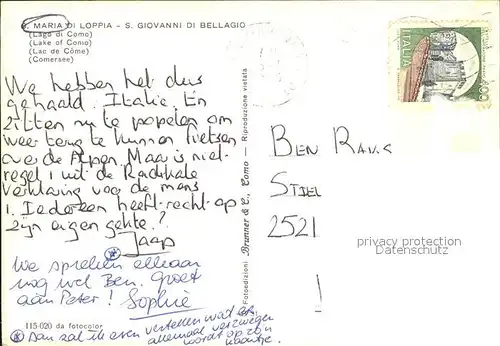 S. MARIA DI LOPPIA - S. GIOVANNI DI BELLAGIO
(Lago di Como)
(Lake of Como)
(Lac de Côme)
(Comersee)
We hebben het dus
gehaald. Italie. En
zitten nu te popelen om
weer terug te kunnen fietsen
over de Alpen. Maar is niet
regel 1 uit de Radikale
verklaring voor de mens
1. Iedereen heeft recht op
zijn eigen gekte?
Jaap
We spreken elkaar
nog wel Ben. Groet
aan Peter! Sophie
115-020 da fotocolor
Dan zal ik even vertellen wat er
allemaal verzwegen
wordt op zo'n
kaartje.
Fotoedizioni Brunner & C., Como - Riproduzione vietata
ITALIA
BEN
STIEL
2521
!
privacy protection
Datenschutz